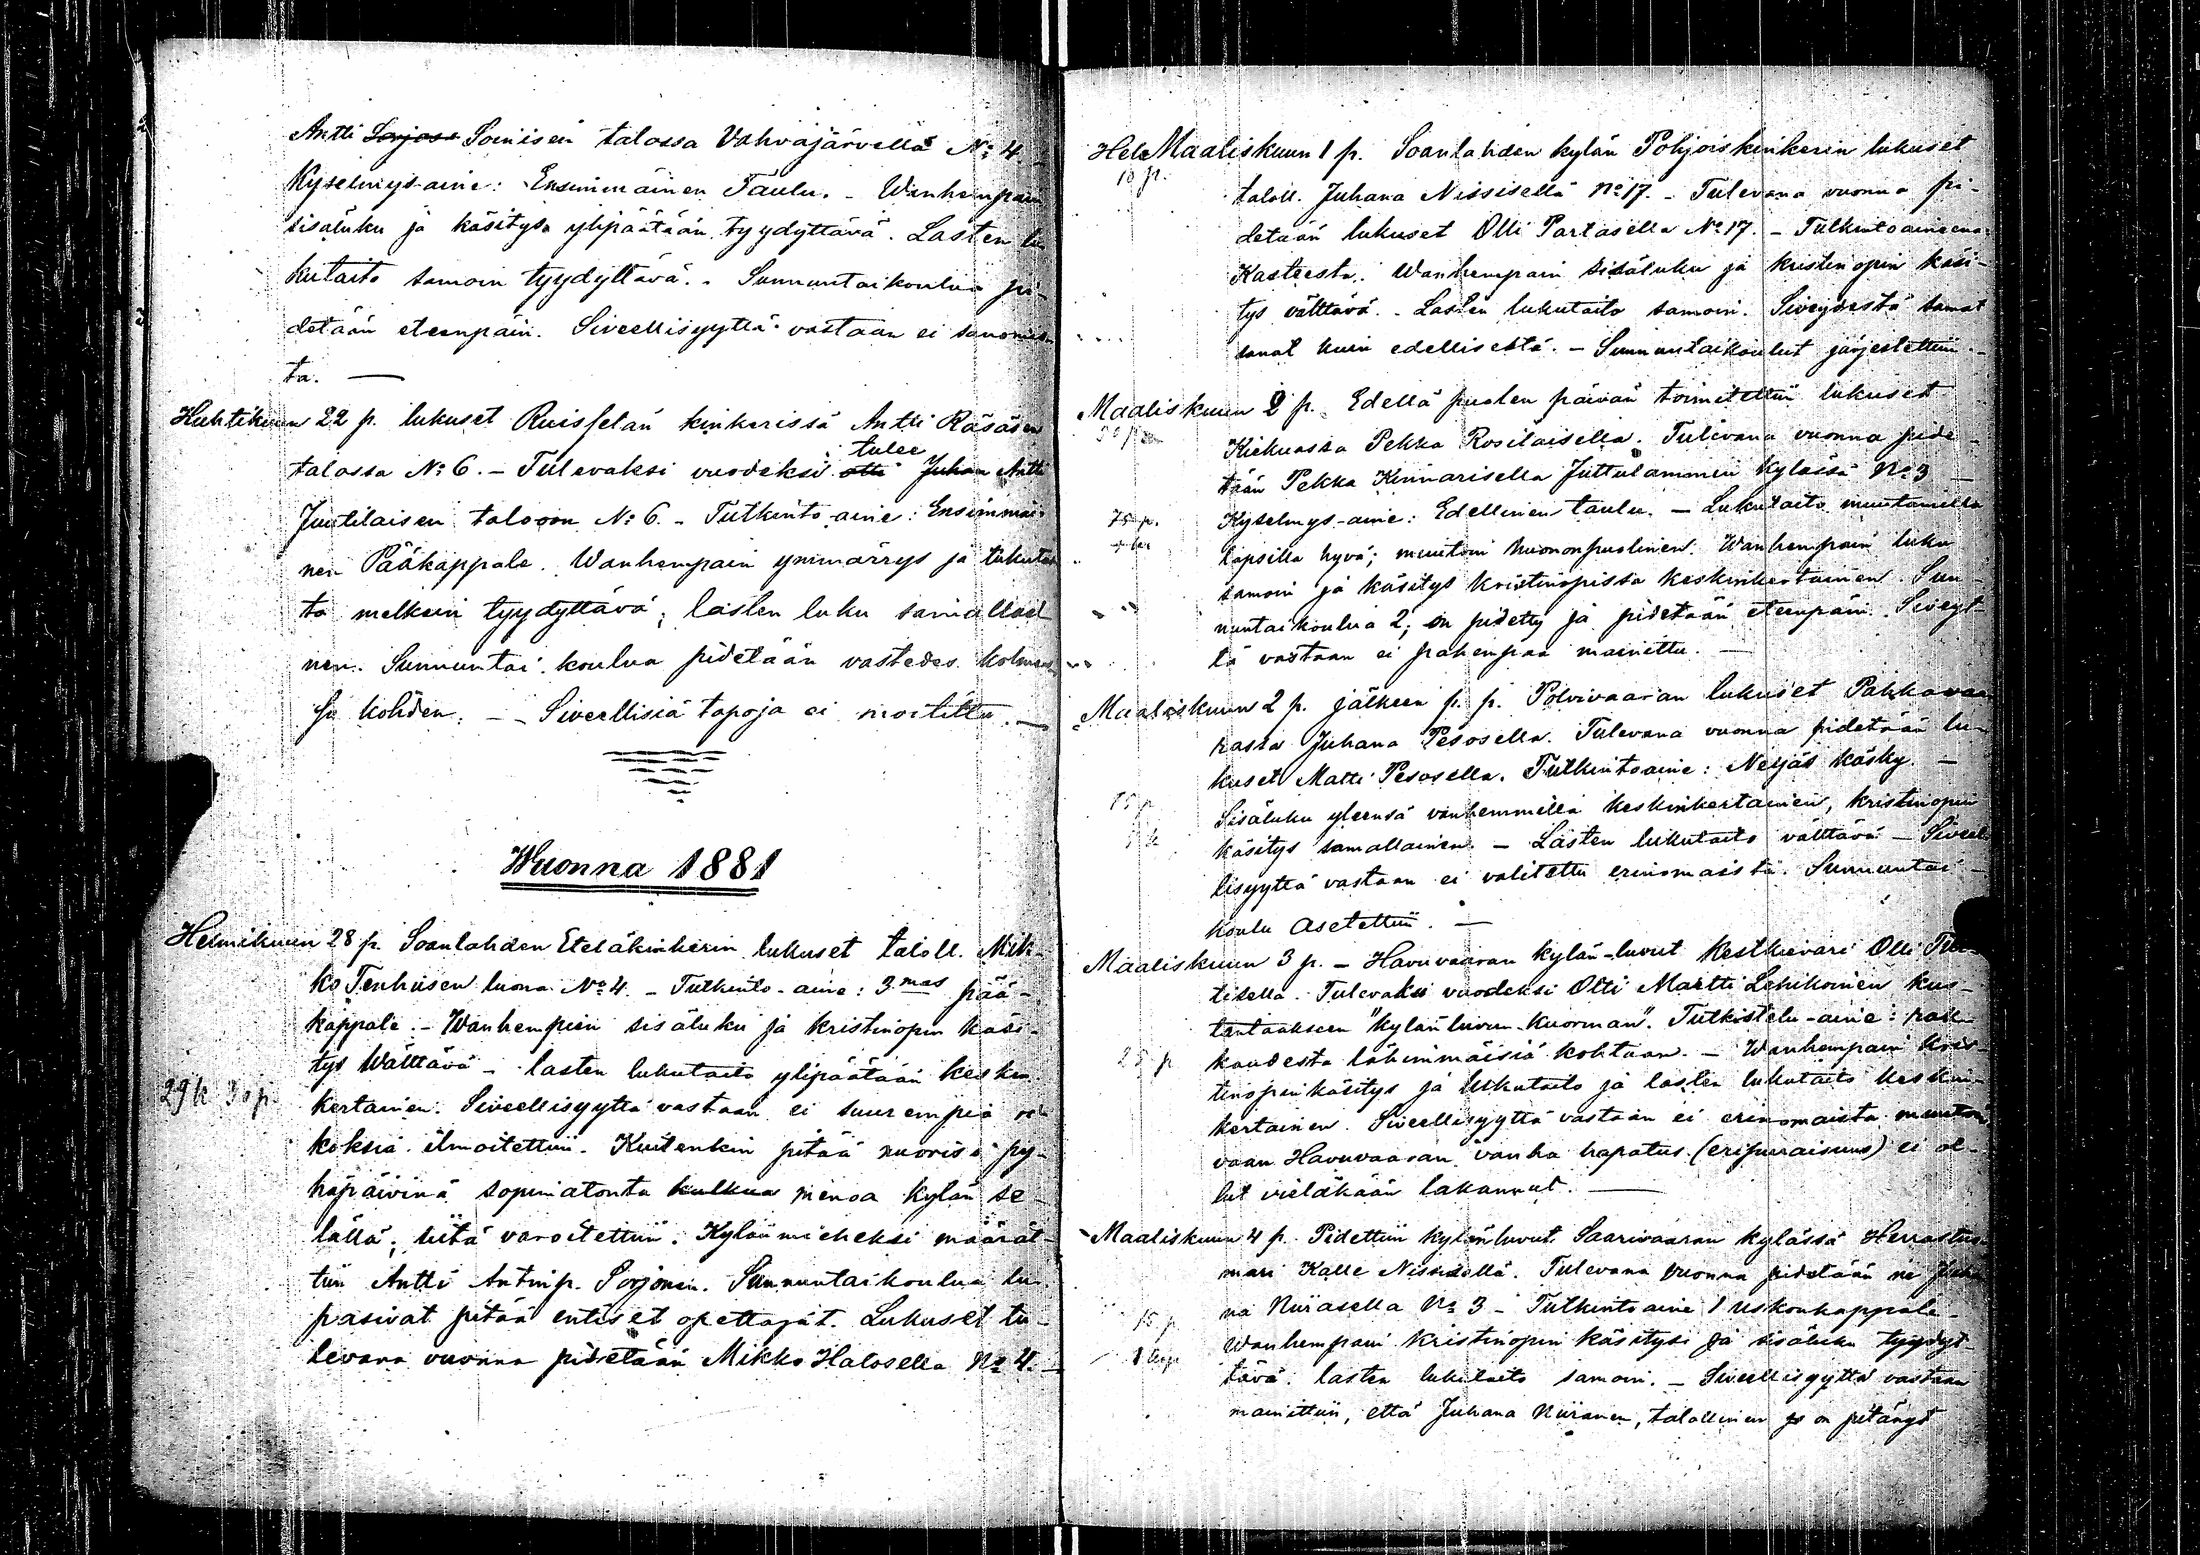 Antti Sorjosen Soinisen talossa Vahvajärvellä № 4 -
Kyselmys-aine: Ensimmäinen Taulu. - Wanhempain
sisäluku ja käsitys ylipäätään tyydyttävä. Lasten lu-
kutaito samoin tyydyttävä. - Sunnuntaikoulua pi-
detään eteenpäin. Siveellisyyttä vastaan ei sanomis-
ta. —
Huhtikuun 22 p. lukuset Ruisselän kinkerissä Antti Räsäsen
tulee
talossa № 6. - Tulevaksi vuodeksi otti Juhan Antti
Juutilaisen taloon № 6. - Tutkinto-aine: Ensimmäi-
nen Pääkappale. Wanhempain ymmärrys ja lukutai-
to melkein tyydyttävä; lasten luku samallai-
nen. Sunnuntai koulua pidetään vastedes kolmes-
sa kohden. - - Siveellisiä tapoja ei moitittu. —
Wuonna 1881
Helmikuun 28 p. Soanlahden Eteläkinkerin lukuset taloll. Mik-
ko Tenhusen luona № 4. - Tutkinto-aine: 3mas pää-
kappale. - Wanhempien sisäluku ja kristinopin käsi-
tys Wälttävä - lasten lukutaito ylipäätään keskin-
29 k 30 p. kertainen. Siveellisyyttä vastaan ei suurempia rik-
koksia ilmoitettiin. Kuitenkin pitää nuoriso py-
häpäivinä sopimatonta kulkua menoa kylän se-
lällä; siitä varoitettiin. Kylänmieheksi määrät-
tiin Antti Antinp. Sorjonen. Sunnuntaikoulua lu-
pasivat pitää entiset opettajat. Lukuset tu-
levana vuonna pidetään Mikko Halosella № 4. -
Hel Maaliskuun 1 p. Soanlahden kylän Pohjoiskinkerin lukuset
10 p.
taloll. Juhana Nissisellä № 17. - Tulevana vuonna pi-
detään lukuset Olli Partasella № 17. - Tutkintoaineena
Kasteesta. Wanhempain sisäluku ja kristinopin käsi-
tys välttävä. - Lasten lukutaito samoin. Siveydestä samat
sanat kuin edellisestä. - Sunnuntaikoulut järjestettiin. -
Maaliskuun 2 p. Edellä puolen päivän toimitettiin lukuset
Kiekuassa Pekka Rosilaisella. Tulevana vuonna pide-
tään Pekka Kinnarisella Juttulammin kylässä № 3 -
75 p. Kyselmys-aine: Edellinen taulu. - Lukutaito muutamilla
lapsilla hyvä; muutoin huononpuolinen. Wanhempain luku
samoin ja käsitys kristinopissa keskinkertainen. Sun-
nuntaikoulua 2; on pidetty ja pidetään eteenpäin. Siveyt-
tä vastaan ei pahempaa mainittu. —
Maaliskuun 2 p. jälkeen p. p. Polvivaaran lukuset Pakkavaa-
rassa Juhana Pesosella. Tulevana vuonna pidetään lu-
kuset Matti Pesosella. Tutkintoaine: Neljäs käsky. -
15 p Sisäluku yleensä vanhemmilla keskinkertainen, kristinopin
käsitys samallainen. - Lasten lukutaito välttävä - Siveel-
lisyyttä vastaan ei valitettu erinomaista. Sunnuntai-
koulu asetettiin. —
Maaliskuun 3 p. - Havuvaaran kylän-luvut Kestkievari Olli
tisella. Tulevaksi vuodeksi Otti Martti Lehikoinen kus-
tantaakseen "kylänluvun-kuorman". Tutkistelu-aine: rak-
25 p kaudesta lähimmäisiä kohtaan. - Wanhempain kris-
tinopinkäsitys ja lukutaito ja lasten lukutaito keskin-
kertainen. Siveellisyyttä vastaan ei erinomaista muuta
vaan Havuvaaran vanha hapatus (eripuraisuus) ei ol-
lut vieläkään lakannut. —
Maaliskuun 4 p. Pidettiin kylänluvut Saarivaaran kylässä Herastus-
mari Kalle Nissisellä. Tulevana vuonna pidetään ne Juha-
na Niirasella № 3 - Tutkintoaine 1 uskonkappale -
15 p Wanhempain kristinopin käsitys ja sisäluku tyydyt-
tävä. lasten lukutaito samoin. - Siveellisyyttä vastaan
mainittiin, että Juhana Niiranen, talollinen on pitänyt